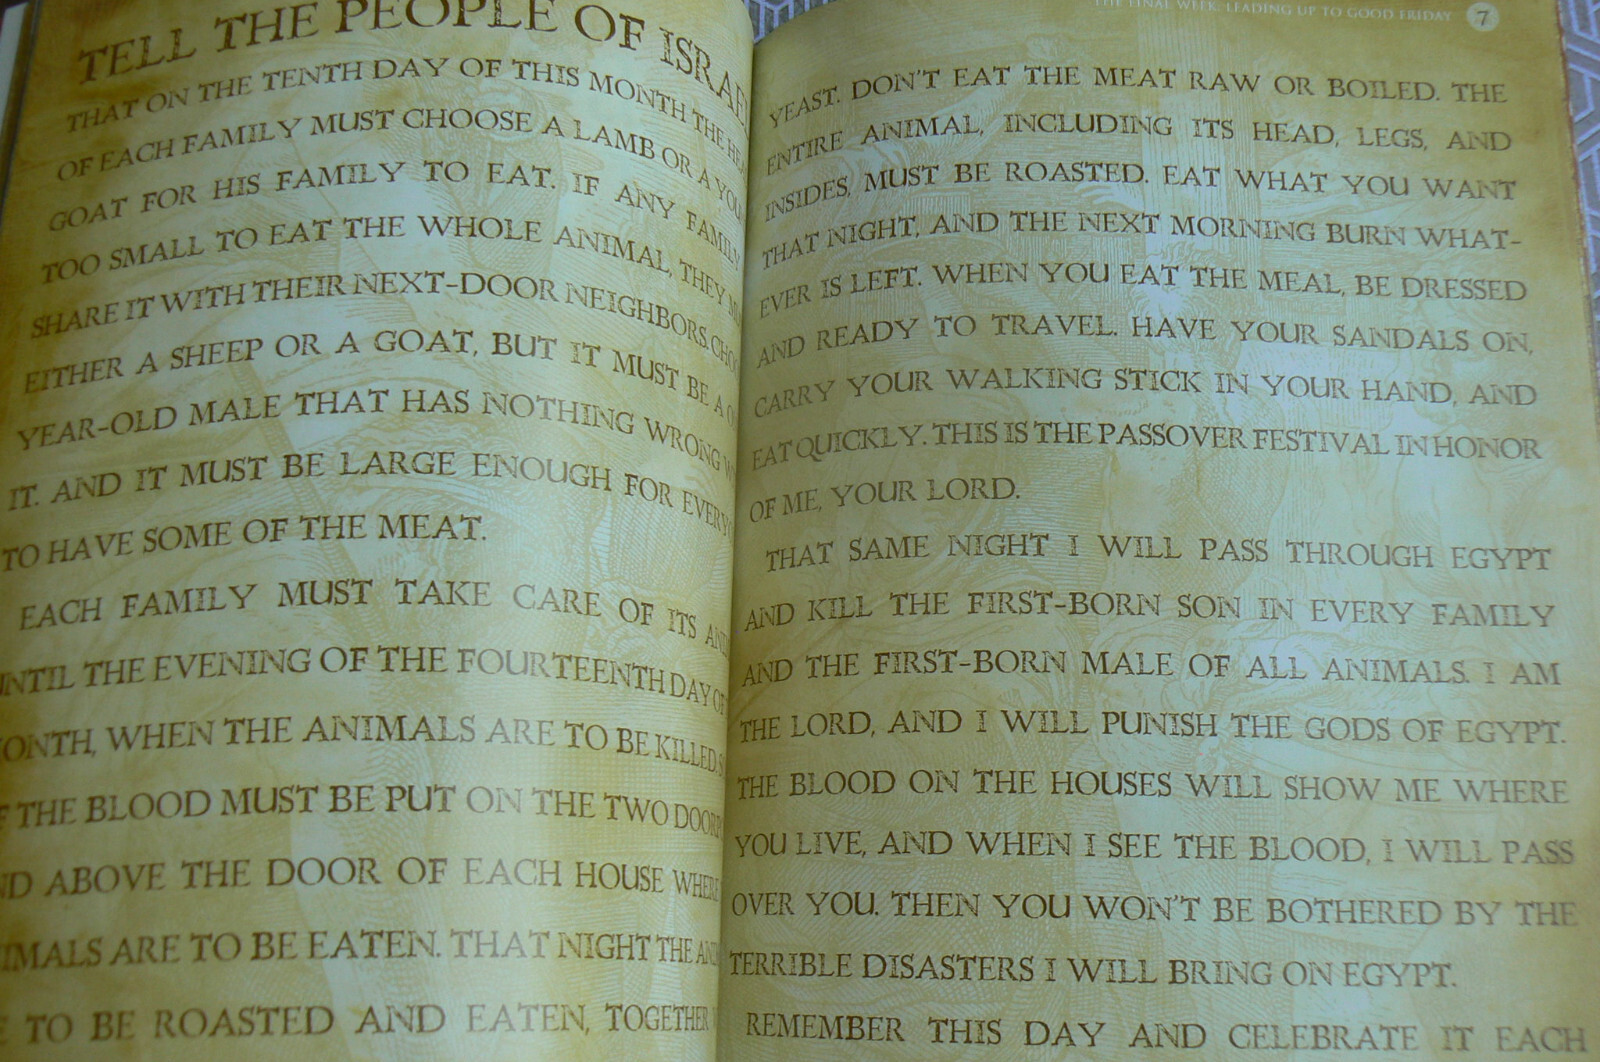 TELL THE PEOPLE OF
THAT ON THE TENTH DAY OF THIS MONTH THE
OF EACH FAMILY MUST CHOOSE A LAMB OR A
GOAT FOR HIS FAMILY TO EAT. IF ANY FAMILY
TOO SMALL TO EAT THE WHOLE ANIMAL, THEY
SHARE IT WITH THEIR NEXT-DOOR NEIGHBORS.
EITHER A SHEEP OR A GOAT, BUT IT MUST BE A
YEAR-OLD MALE THAT HAS NOTHING WRONG
IT. AND IT MUST BE LARGE ENOUGH FOR
TO HAVE SOME OF THE MEAT.
EACH FAMILY MUST TAKE CARE OF ITS
UNTIL THE EVENING OF THE FOURTEENTH DAY OF
WHEN THE ANIMALS ARE TO BE KILLED.
THE BLOOD MUST BE PUT ON THE TWO
ABOVE THE DOOR OF EACH HOUSE WHERE
ARE TO BE EATEN. THAT NIGHT THE
TO BE ROASTED AND EATEN, TOGETHER
THE FINAL WEEK, LEADING UP TO GOOD FRIDAY 7
YEAST. DON'T EAT THE MEAT RAW OR BOILED. THE
ENTIRE ANIMAL, INCLUDING ITS HEAD, LEGS, AND
INSIDES, MUST BE ROASTED. EAT WHAT YOU WANT
THAT NIGHT, AND THE NEXT MORNING BURN WHAT-
EVER IS LEFT. WHEN YOU EAT THE MEAL, BE DRESSED
AND READY TO TRAVEL. HAVE YOUR SANDALS ON,
CARRY YOUR WALKING STICK IN YOUR HAND, AND
EAT QUICKLY. THIS IS THE PASSOVER FESTIVAL IN HONOR
OF ME, YOUR LORD.
THAT SAME NIGHT I WILL PASS THROUGH EGYPT
AND KILL THE FIRST-BORN SON IN EVERY FAMILY
AND THE FIRST-BORN MALE OF ALL ANIMALS. I AM
THE LORD, AND I WILL PUNISH THE GODS OF EGYPT.
THE BLOOD ON THE HOUSES WILL SHOW ME WHERE
YOU LIVE, AND WHEN I SEE THE BLOOD, I WILL PASS
OVER YOU. THEN YOU WON'T BE BOTHERED BY THE
TERRIBLE DISASTERS I WILL BRING ON EGYPT.
REMEMBER THIS DAY AND CELEBRATE IT EACH